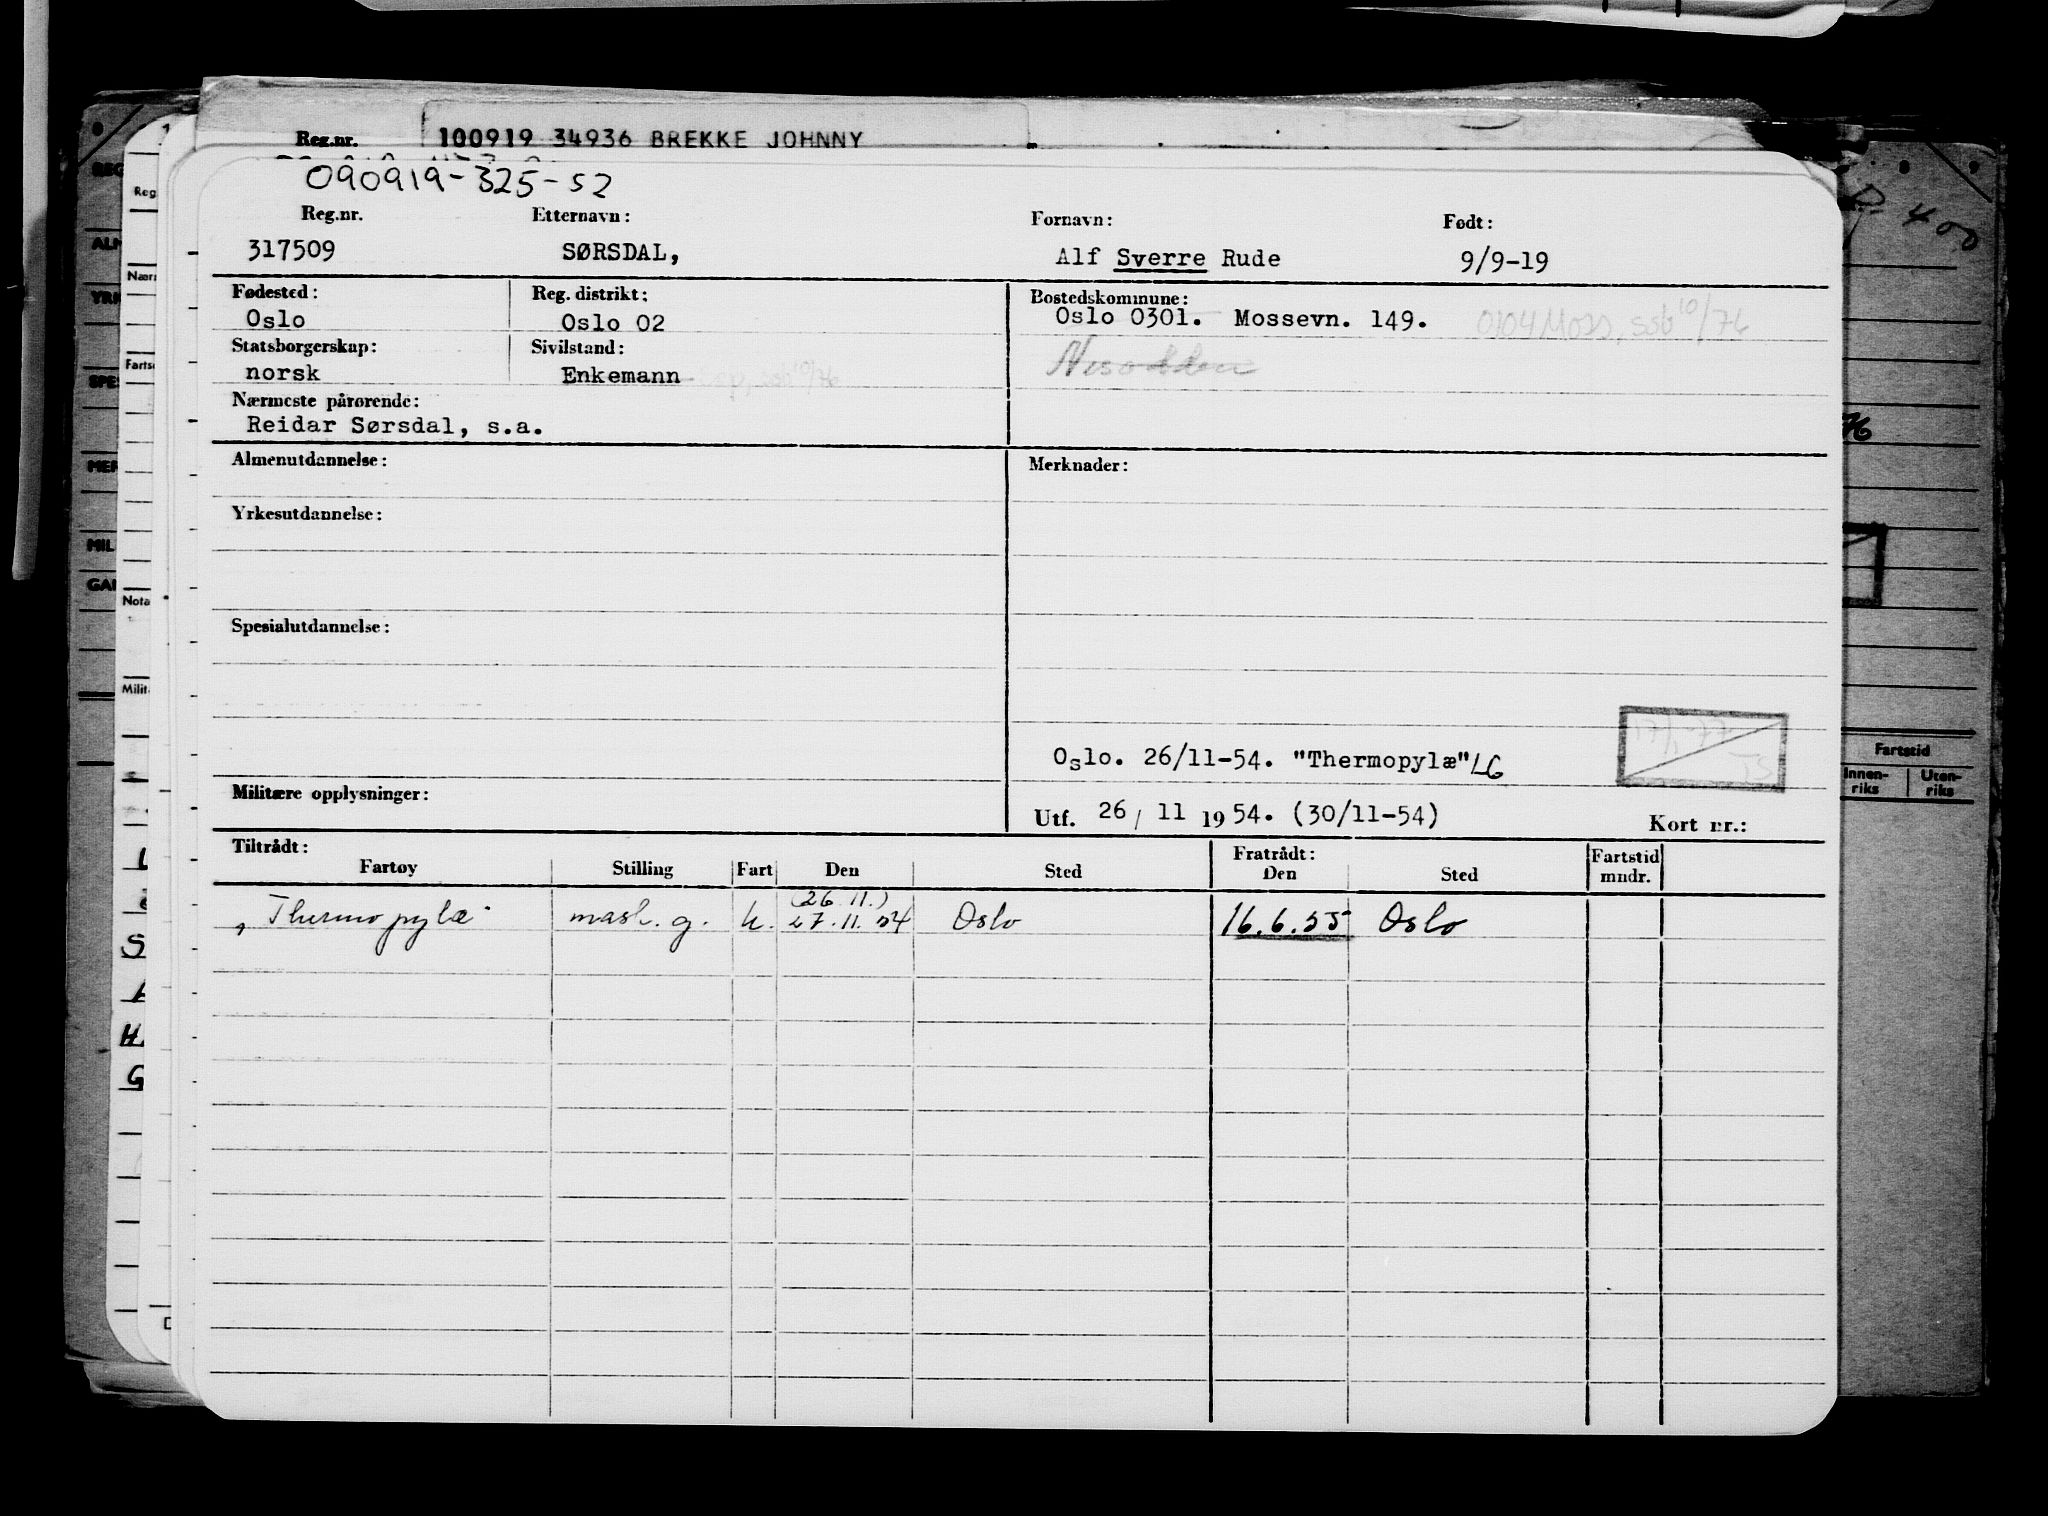 Reg.nr. 100919 34936 BREKKE JOHNNY
090919-325-52
Reg.nr. Etternavn: Fornavn: Født:
317509 SØRSDAL, Alf Sverre Rude 9/9-19
Fødested: Reg. distrikt: Bostedskommune:
Oslo Oslo 02 Oslo 0301. Mossevn. 149. 0104 Moss, ssb 10/76
Statsborgerskap: Sivilstand: Nesodden
norsk Enkemann ssb 10/76
Nærmeste pårørende:
Reidar Sørsdal, s.a.
Almenutdannelse: Merknader:
Yrkesutdannelse:
Spesialutdannelse:
Oslo. 26/11-54. "Thermopylæ" LG
17/1-77 JS
Militære opplysninger:
Utf. 26/11 1954. (30/11-54) Kort nr.:
Tiltrådt: Fratrådt: Fartstid
Fartøy Stilling Fart Den Sted Den Sted mndr.
(26.11.)
"Thermopylæ" mask. g. u. 27.11.54 Oslo 16.6.55 Oslo
REG
ALM
YRK
SPES
MER
MIL
GAR
Reg
Nærm
Fartsø
Nota
Milit
S
H
G
D 400
76
Fartstid
Innen-
riks
Uten-
riks